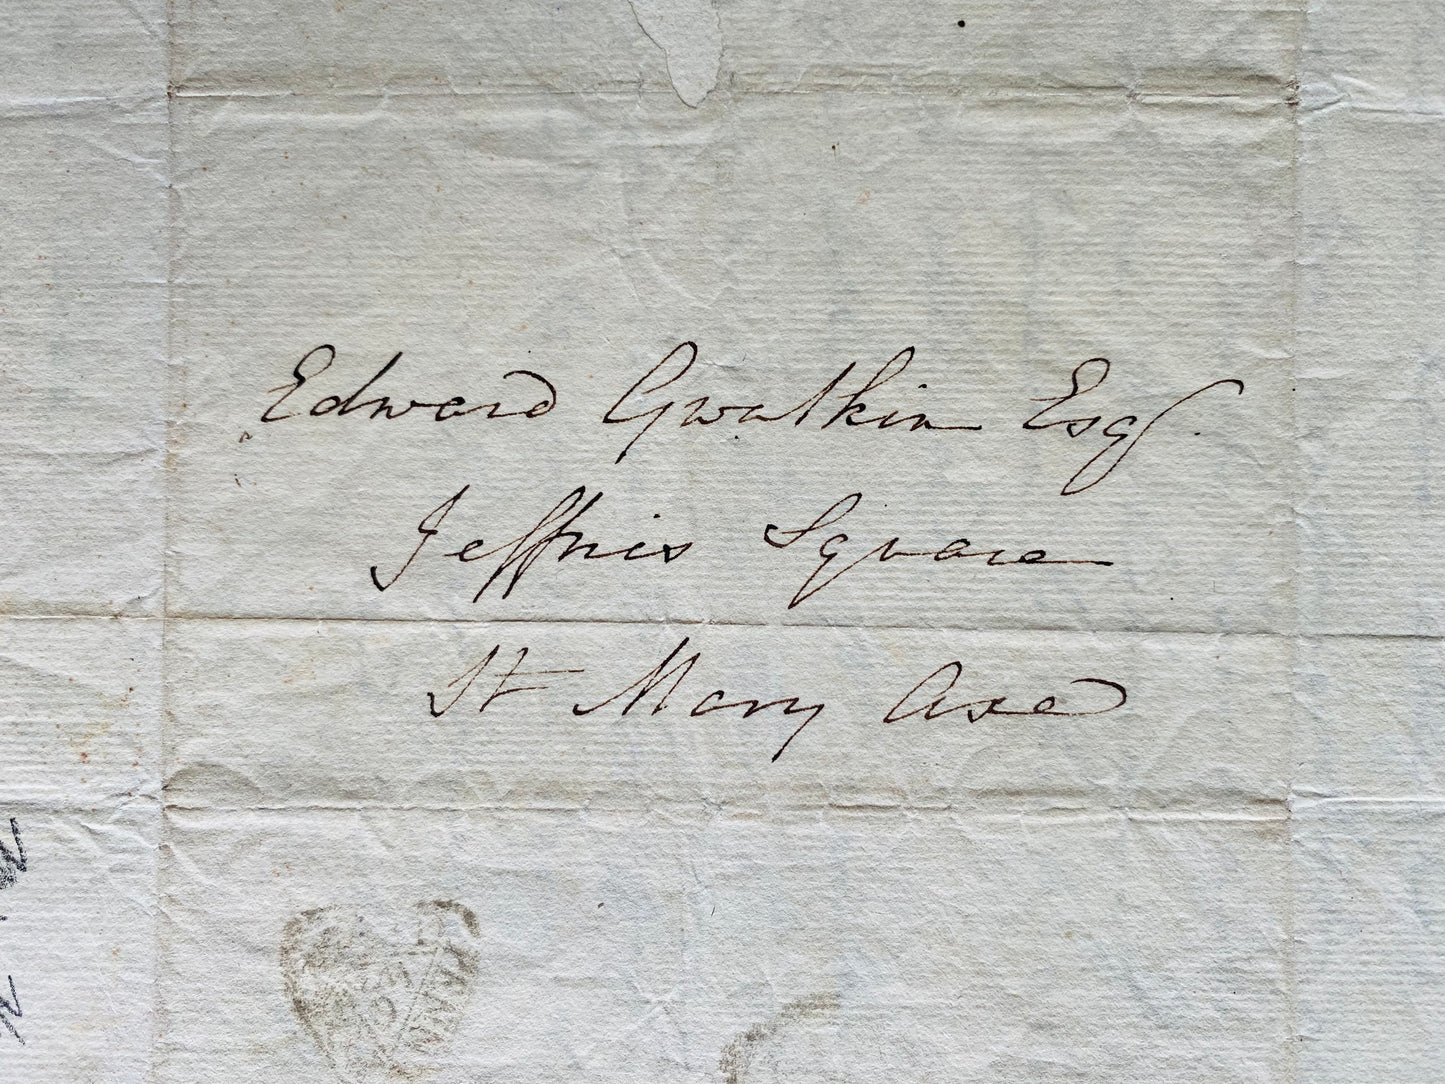 Edward Gwatkin Esq.
Jeffries Square
St Mary Axe